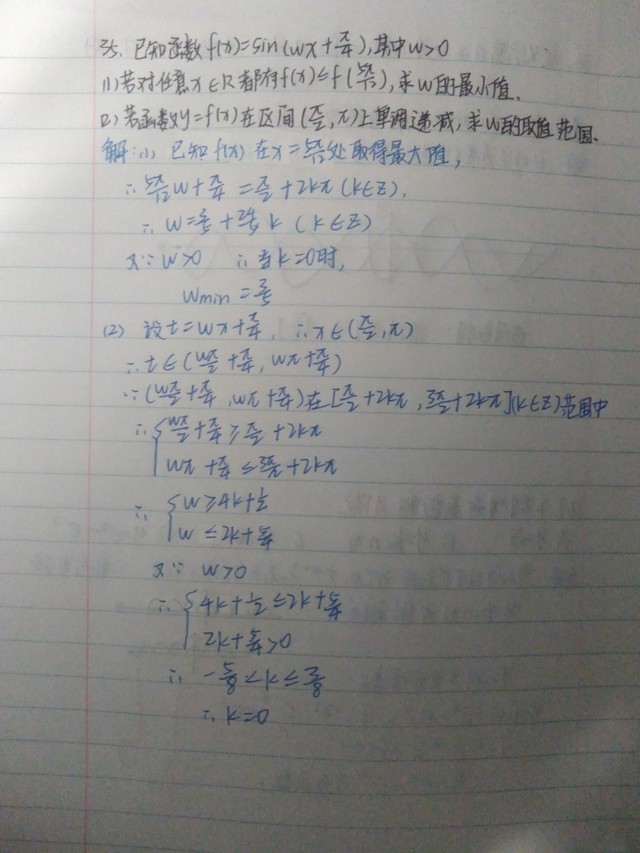 35. 已知函数f(x)=sin(wx+π/4),其中w>0
(1)若对任意x∈R都有f(x)≤f(5π/12),求w的最小值.
(2)若函数y=f(x)在区间(π/2,π)上单调递减,求w的取值范围.
解:(1) 已知f(x)在x=5π/12处取得最大值,
∴ 5π/12 w+π/4=π/2+2kπ(k∈Z).
∴ w=3/5+24/5 k (k∈Z)
又∵ w>0 ∴当k=0时,
wmin=3/5
(2) 设t=wx+π/4, ∴x∈(π/2,π)
∴t∈(wπ/2+π/4, wπ+π/4)
∵(wπ/2+π/4, wπ+π/4)在[π/2+2kπ, 3π/2+2kπ](k∈Z)范围中
∴{wπ/2+π/4≥π/2+2kπ
wπ+π/4≤3π/2+2kπ
∴{w≥4k+1/2
w≤2k+5/4
又∵ w>0
∴{4k+1/2≤2k+5/4
2k+5/4>0
∴ -5/8<k≤3/8
∴k=0